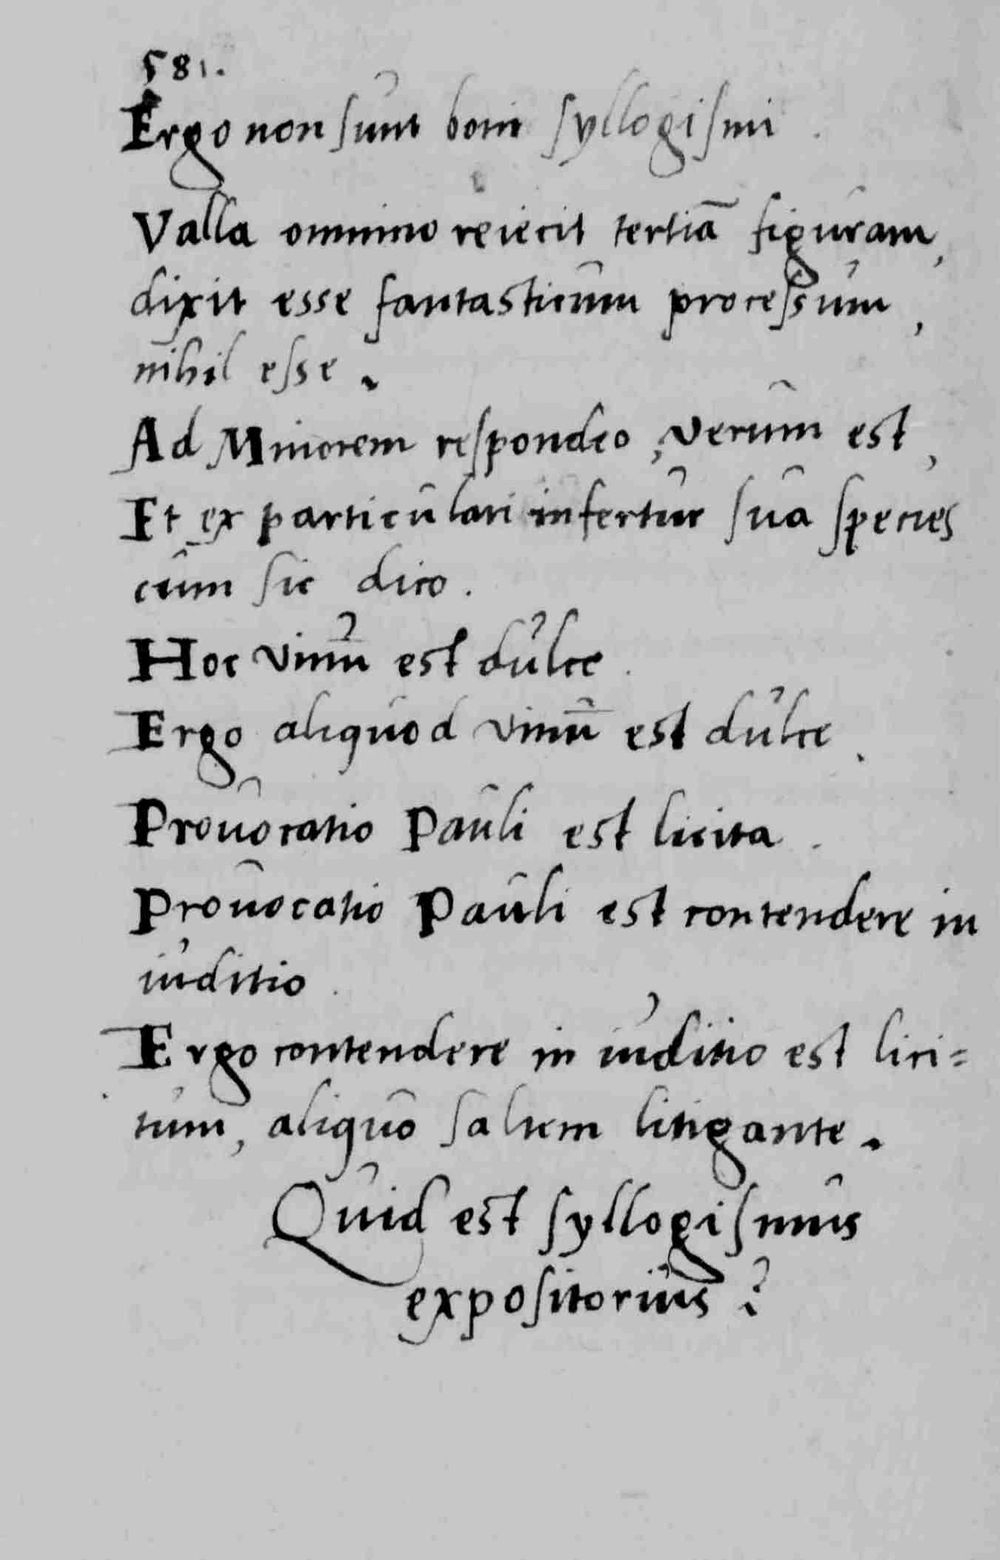 581.
Ergo non sunt boni syllogismi.
Valla omnino reiecit tertiā figuram,
dixit esse fantasticum processum,
nihil esse.
Ad Minorem respondeo, verum est,
Et ex particulari infertur sua species
cum sic dico.
Hoc vinū est dulce.
Ergo aliquod vinū est dulce.
Provocatio Pauli est licita.
Provocatio Pauli est contendere in
iuditio.
Ergo contendere in iuditio est lici=
tum, aliquo saltem litigante.
Quid est syllogismus
expositorius?